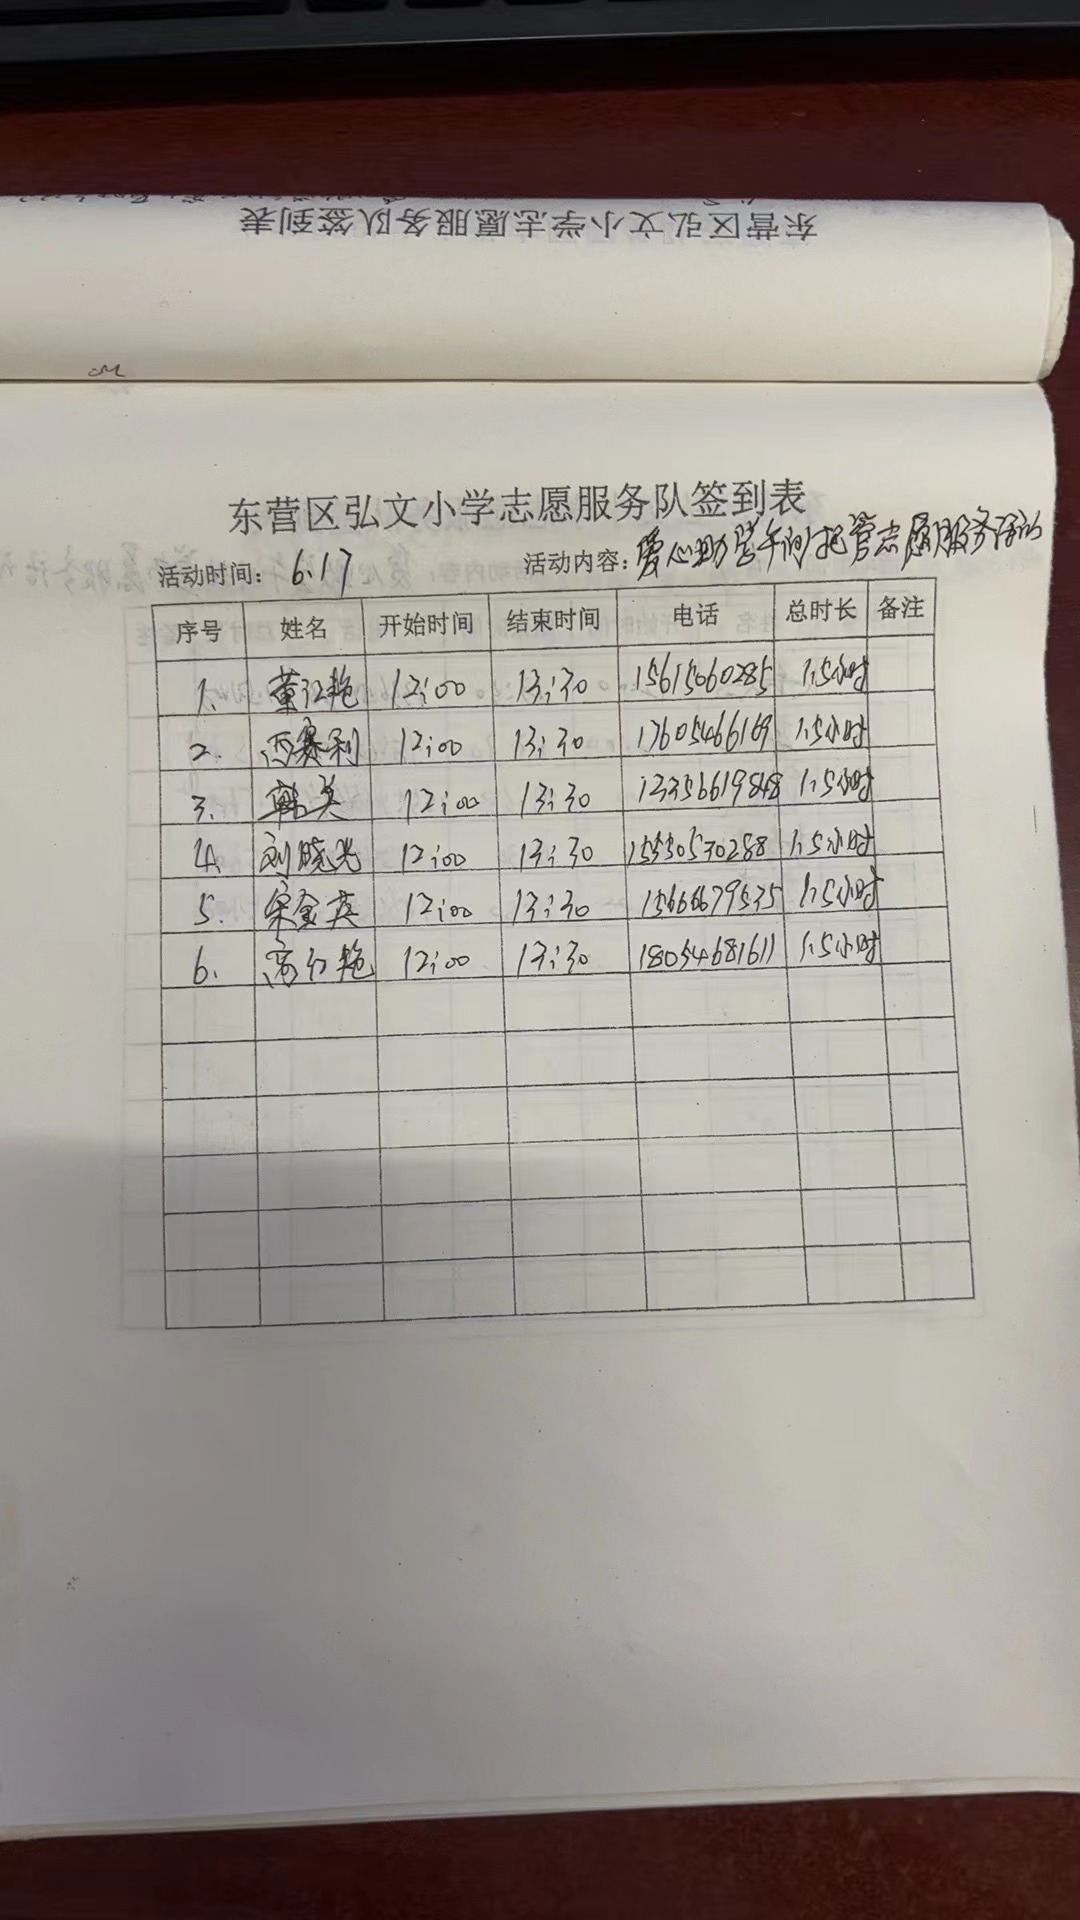 东营区弘文小学志愿服务队签到表
东营区弘文小学志愿服务队签到表
活动时间： 6.17 活动内容：爱心助学午间托管志愿服务活动
序号 姓名 开始时间 结束时间 电话 总时长 备注
1. 董红艳 12:00 13:30 15615060285 1.5小时
2. 西赛利 12:00 13:30 17605466169 1.5小时
3. 韩美 12:00 13:30 13356619848 1.5小时
4. 刘晓光 12:00 13:30 15550570288 1.5小时
5. 宋金英 12:00 13:30 15666679535 1.5小时
6. 高红艳 12:00 13:30 18054681611 1.5小时